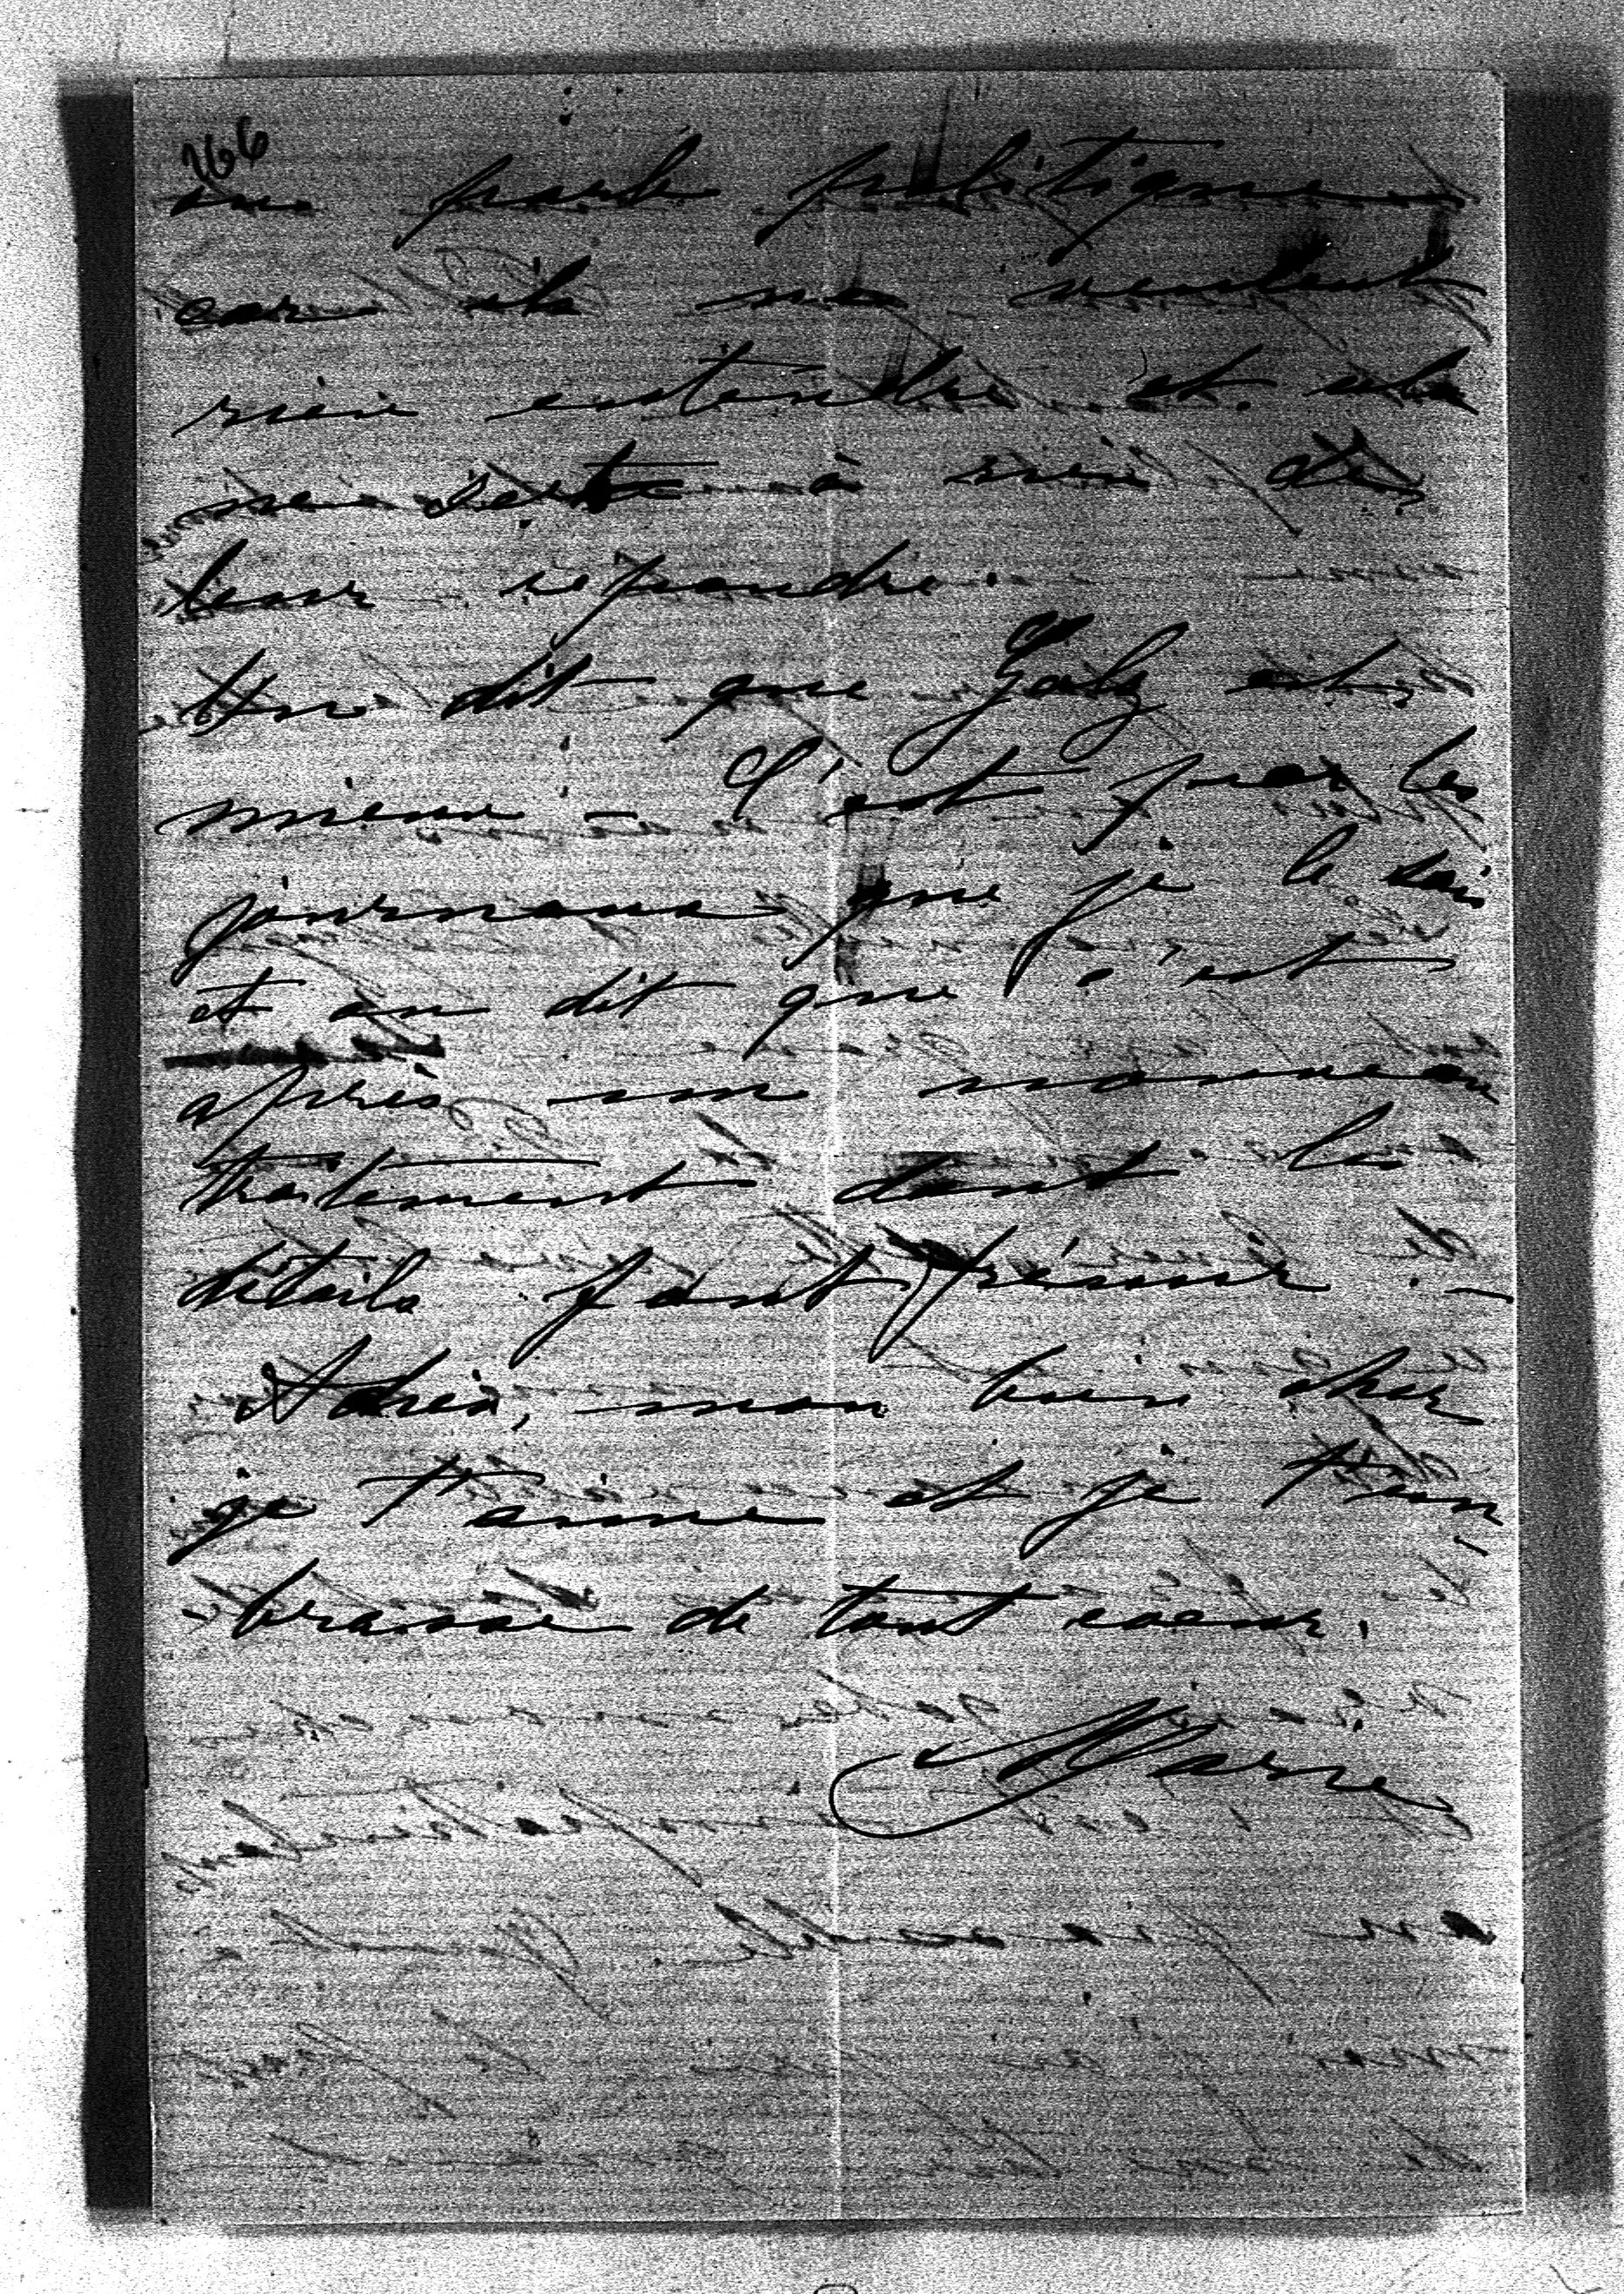 266
on parle politique
car ils ne veulent
rien entendre et cela
ne sert à rien de
leur répondre.
On dit que Galy est
mieux - C'est par les
journaux que je le sais
et on dit que c'est
après un nouveau
traitement dont les
détails font frémir. -
Adieu, mon bien cher
je t'aime et je t'em-
-brasse de tout coeur.
Marie